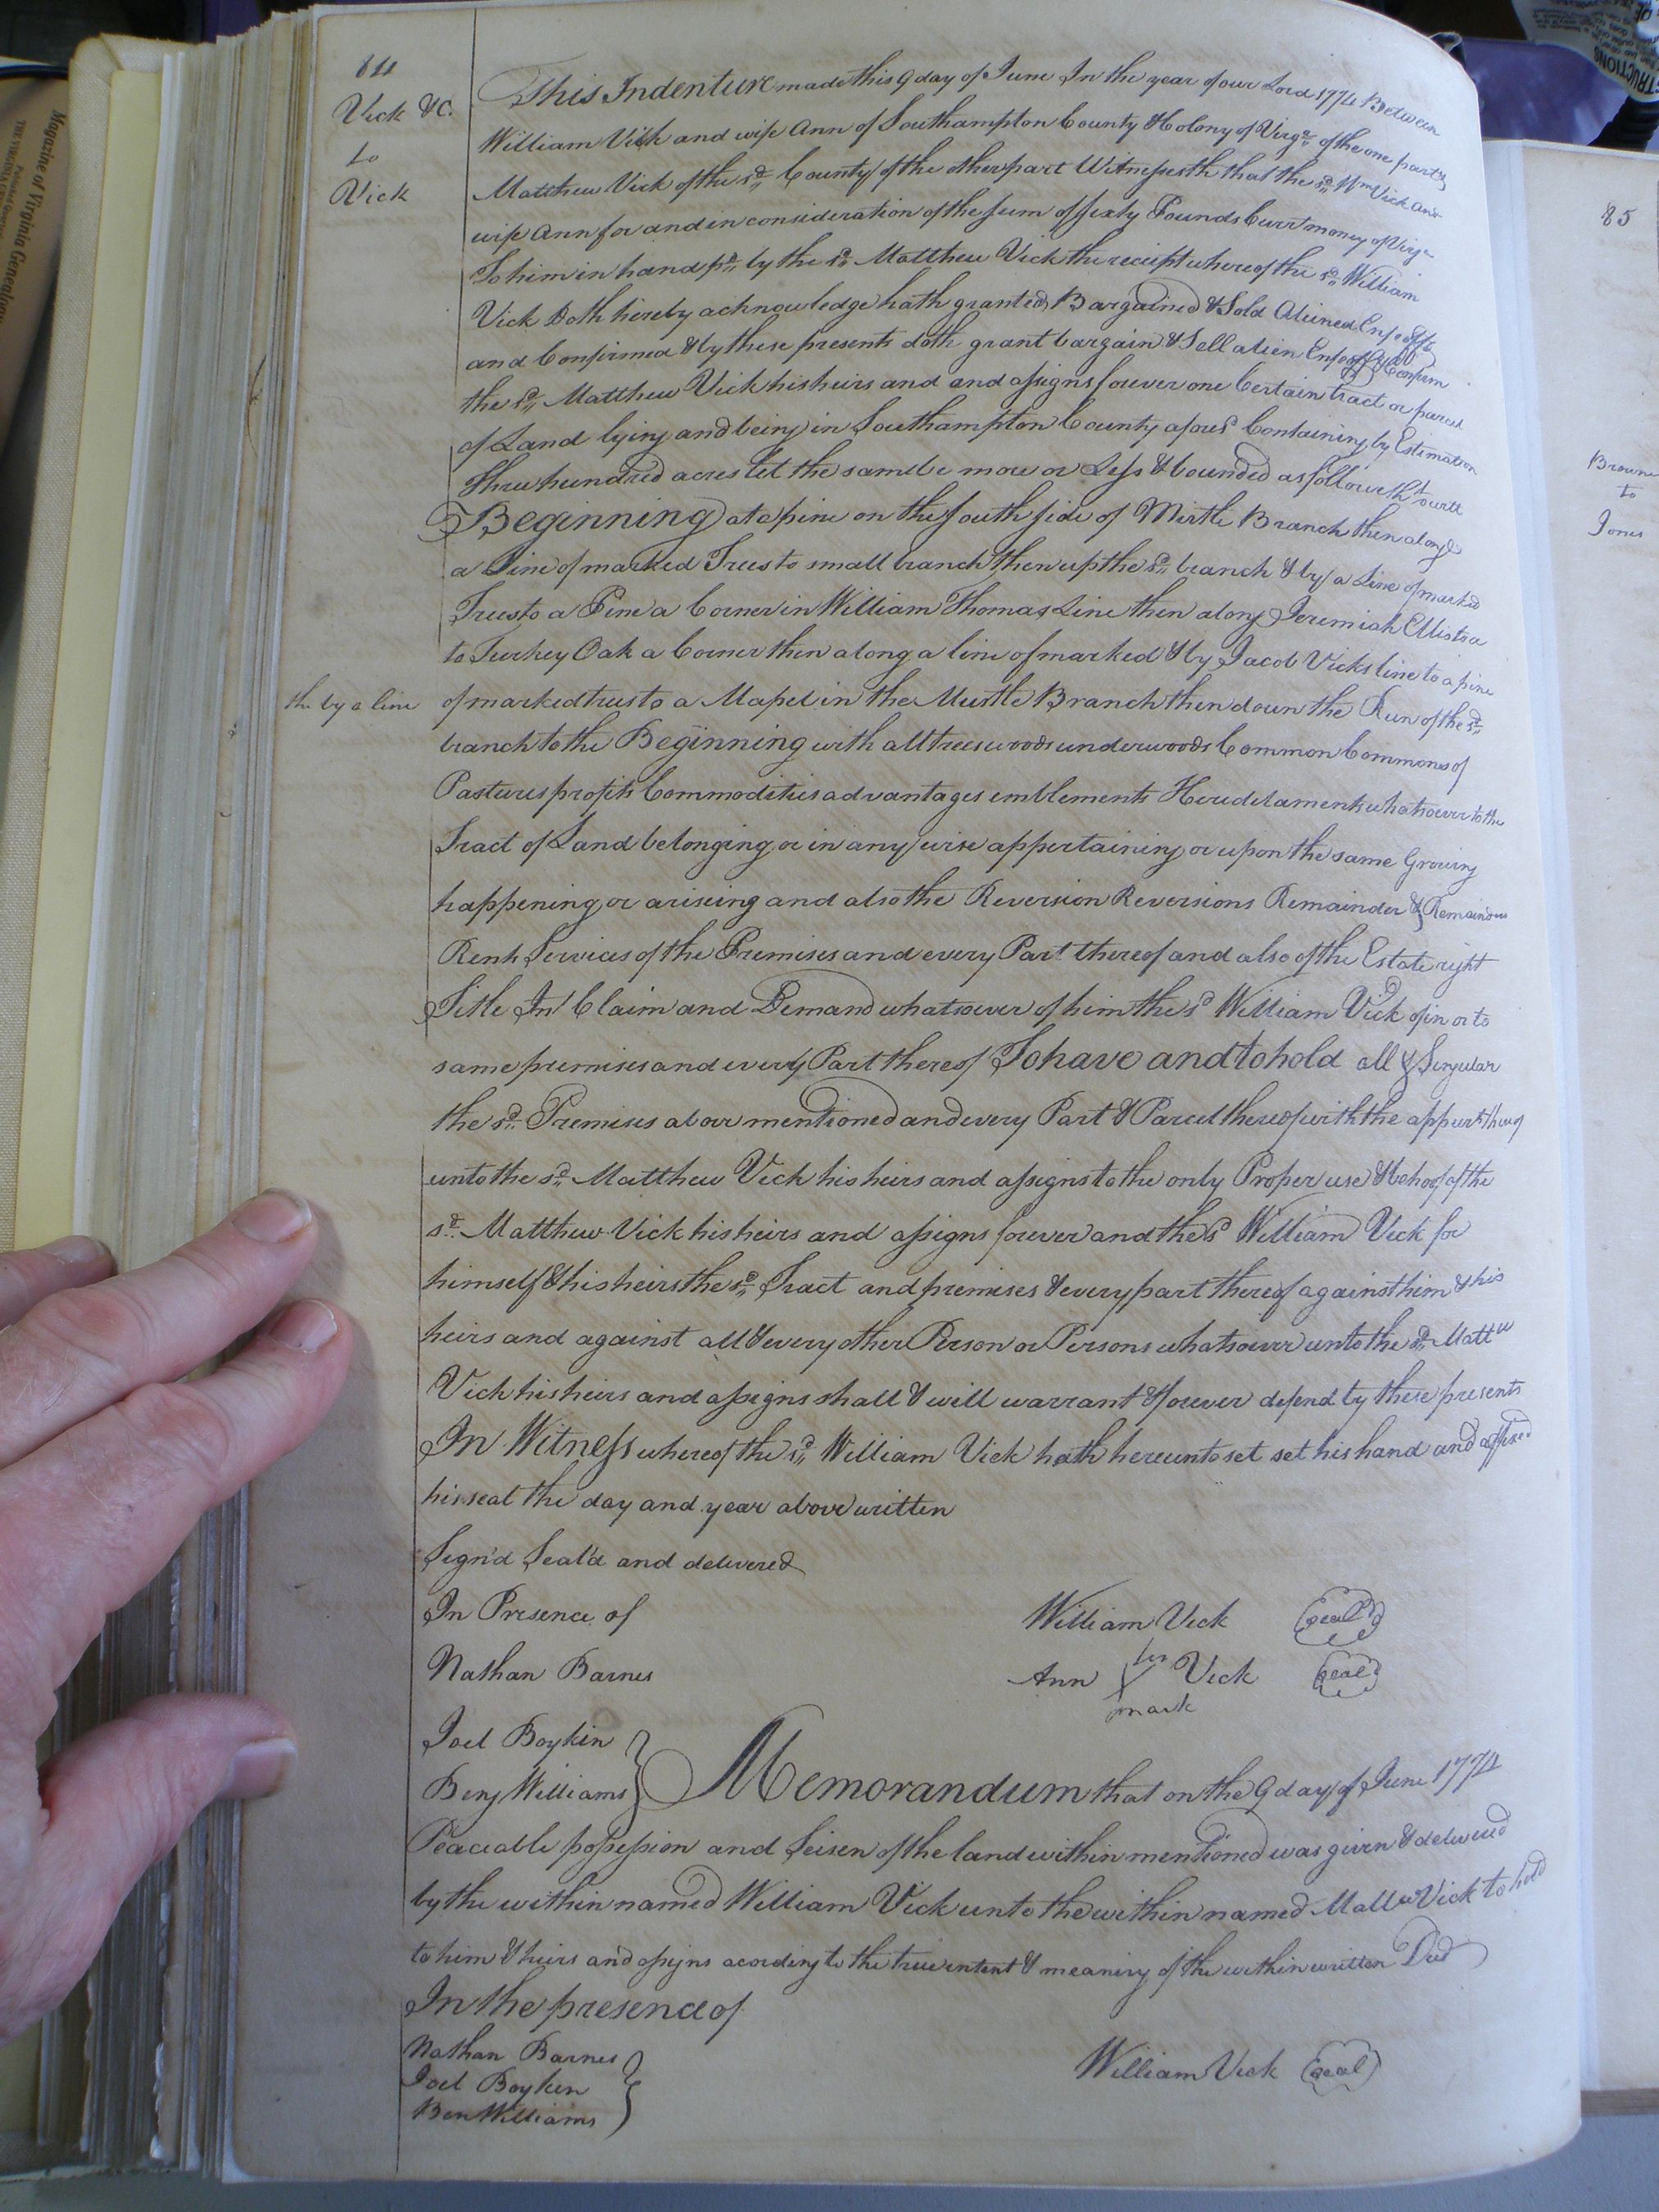 84
Vick &C.
to
Vick
This Indenture made this 9 day of June In the year of our Lord 1774 Between
William Vick and wife Ann of Southampton County & Colony of Virga. of the one part &
Matthew Vick of the sd. County of the other part Witnesseth that the sd. Wm Vick and
wife Ann for and in consideration of the sum of sixty Pounds Curr't money of Virga
To him in hand pd. by the sd. Matthew Vick the receipt whereof the sd. William
Vick Doth hereby acknowledge hath granted Bargained & Sold Aliened Enfeoff'd
and Confirmed & by these presents doth grant bargain & Sell alien Enfeoff & Confirm
the sd. Matthew Vick his heirs and and assigns forever one Certain tract or parcel
of Land lying and being in Southampton County afors'd Containing by Estimation
Three hundred acres let the same be more or Less & bounded as followeth to witt
Beginning at a pine on the south side of Mirtle Branch then along
a Line of marked Trees to small branch then up the sd. branch & by a Line of marked
Trees to a Pine a Corner in William Thomas Line then along Jeremiah Ellis to a
to Turkey Oak a Corner then along a line of marked & by Jacob Vicks line to a pine
the by a line
of marked trees to a Mapel in the Murtle Branch then down the Run of the sd.
branch to the Beginning with all trees woods underwoods Common Commons of
Pastures profits Commodities advantages emblements Heredetaments whatsoever to the
Tract of Land belonging or in any wise appertaining or upon the same Growing
happening or arising and also the Reversion Reversions Remainder & Remainders
Rents Services of the Premises and every Part thereof and also of the Estate right
Title Int Claim and Demand whatsoever of him the sd William Vick of in or to
same premises and every Part thereof To have and to hold all & Singular
the sd. Premises above mentioned and every Part & Parcel thereof with the appurts
unto the sd. Matthew Vick his heirs and assigns to the only Proper use & behoof of the
sd. Matthew Vick his heirs and assigns forever and the sd William Vick for
himself & his heirs the sd. Tract and premises & every part thereof against him & his
heirs and against all & every other Person or Persons whatsoever unto the sd. Mattw
Vick his heirs and assigns shall & will warrant & forever defend by these presents
In Witness whereof the sd. William Vick hath hereunto set set his hand and affixed
his seal the day and year above written
Sign'd Seal'd and delivered
In Presence of
William Vick (seal)
Nathan Barnes
Ann her X mark Vick (seal)
Joel Boykin
Benj Williams
Memorandum that on the 9 day of June 1774
Peaceable possession and Seisen of the land within mentioned was given & delivered
by the within named William Vick unto the within named Mattw Vick to hold
to him & heirs and assigns according to the true intent & meaning of the within written Deed
In the presence of
Nathan Barnes
Joel Boykin
Ben Williams
William Vick (seal)
85
Brown
to
Jones
Magazine of Virginia Genealogy